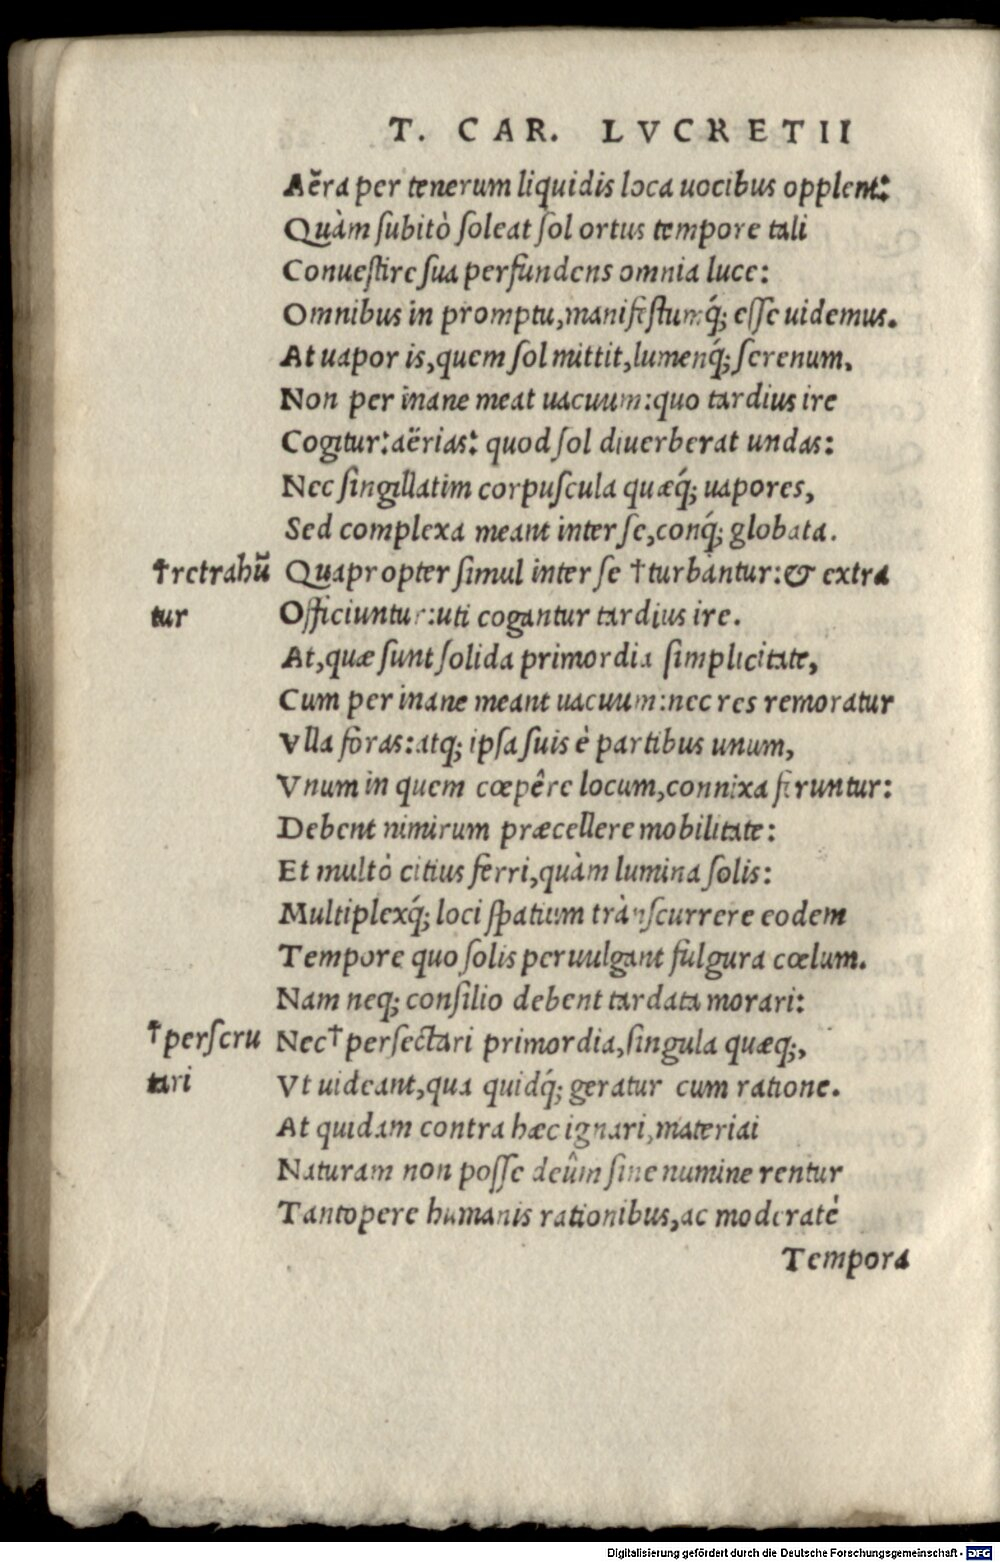 T. CAR. LVCRETII
Aëra per tenerum liquidis loca uocibus opplent:
Quàm subitò soleat sol ortus tempore tali
Conuestire sua perfundens omnia luce:
Omnibus in promptu, manifestumq́; esse uidemus.
At uapor is, quem sol mittit, lumenq́; serenum,
Non per inane meat uacuum: quo tardius ire
Cogitur: aërias: quod sol diuerberat undas:
Nec singillatim corpuscula quæq́; uapores,
Sed complexa meant inter se, conq́; globata.
†retrahũ Quapropter simul inter se †turbantur: & extra
tur Officiuntur: uti cogantur tardius ire.
At, quæ sunt solida primordia simplicitate,
Cum per inane meant uacuum: nec res remoratur
Vlla foras: atq; ipsa suis è partibus unum,
Vnum in quem cœpêre locum, connixa feruntur:
Debent nimirum præcellere mobilitate:
Et multò citius ferri, quàm lumina solis:
Multiplexq́; loci spatium trànscurrere eodem
Tempore quo solis peruulgant fulgura cœlum.
Nam neq; consilio debent tardata morari:
†perscru Nec †persectari primordia, singula quæq;,
tari Vt uideant, qua quidq́; geratur cum ratione.
At quidam contra hæc ignari, materiai
Naturam non posse deûm sine numine rentur
Tantopere humanis rationibus, ac moderatè
Tempora
Digitalisierung gefördert durch die Deutsche Forschungsgemeinschaft - DFG